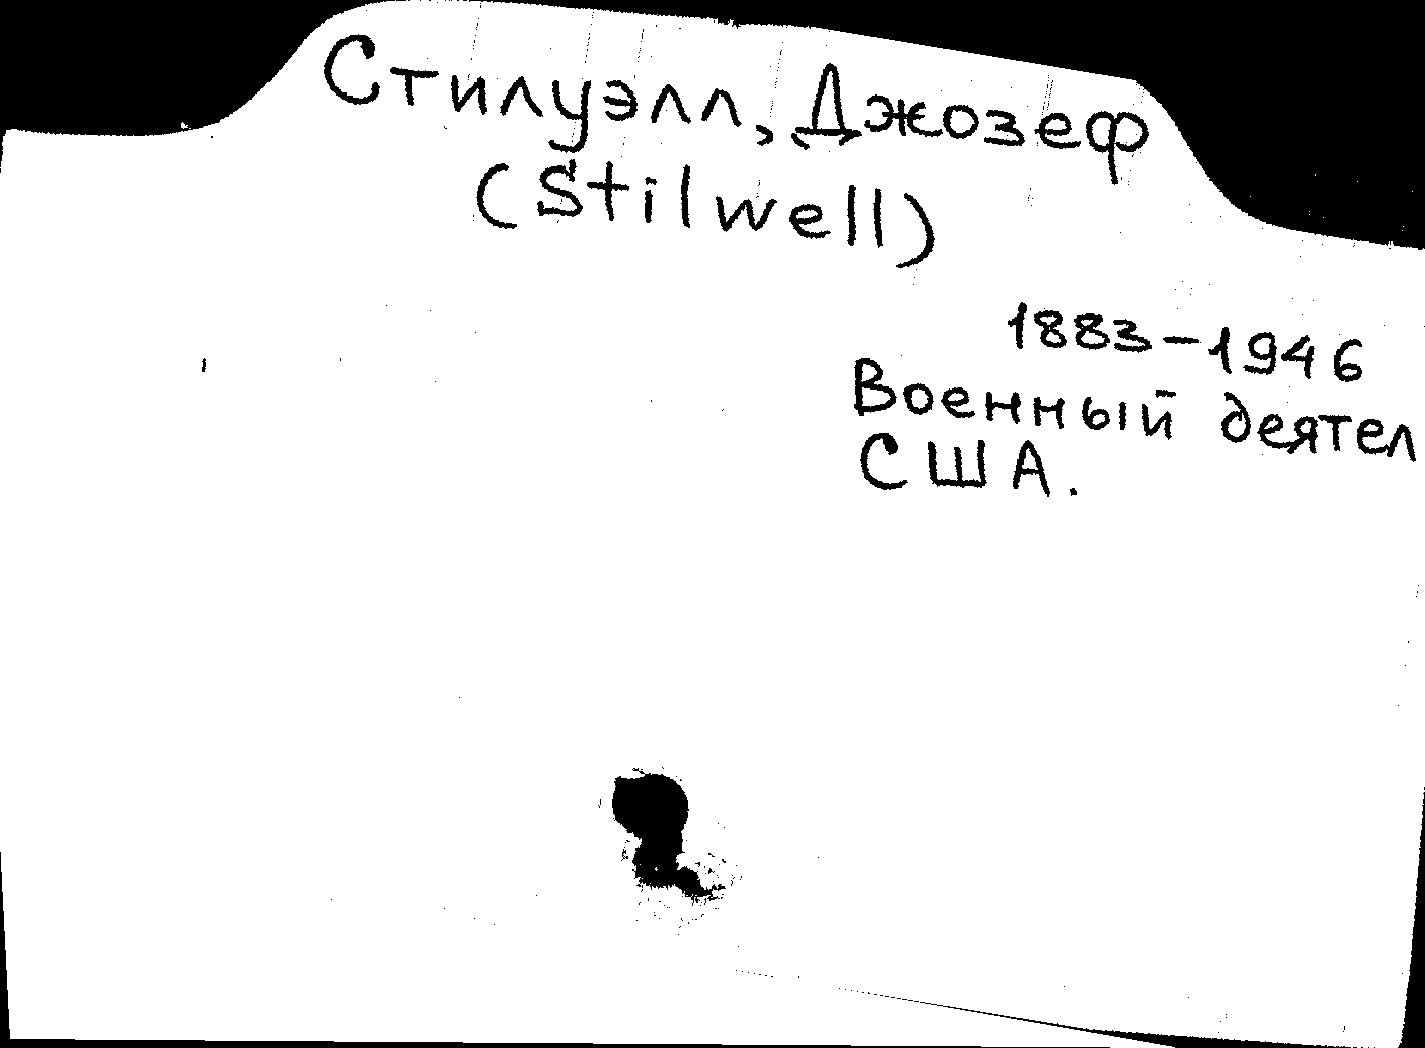 Стилуэлл, Джозеф
(Stilwell)
1883-1946
Военный деятел
США.